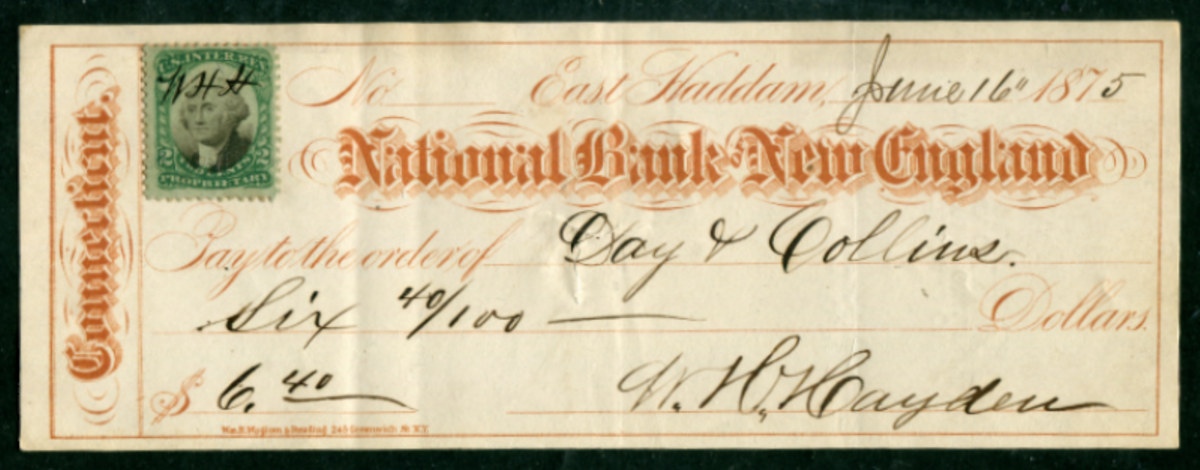 Connecticut.
U.S. INTER. REV.
W H H
PROPRIETARY
No East Haddam, June 16" 1875
National Bank New England
Pay to the order of Day & Collins.
Six 40/100 Dollars.
$ 6.40
W. H. Hayden
245 Greenwich St. N.Y.